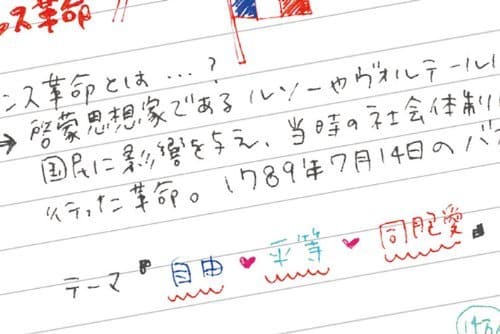 ンス革命
ンス革命とは…?
→ 啓蒙思想家であるルソーやヴォルテール
国民に影響を与え、当時の社会体制
行った革命。1789年7月14日のバ
テーマ 自由 ♥ 平等 ♥ 同胞愛